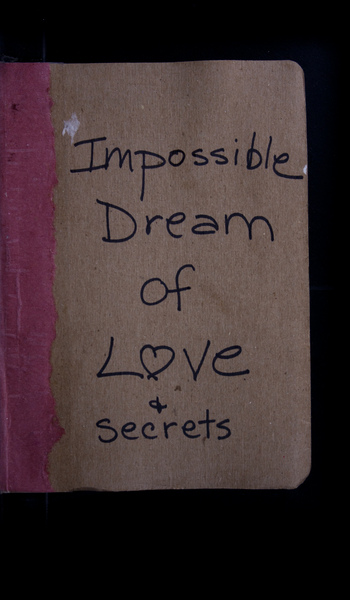 Impossible
Dream
of
L♡ve
&
secrets